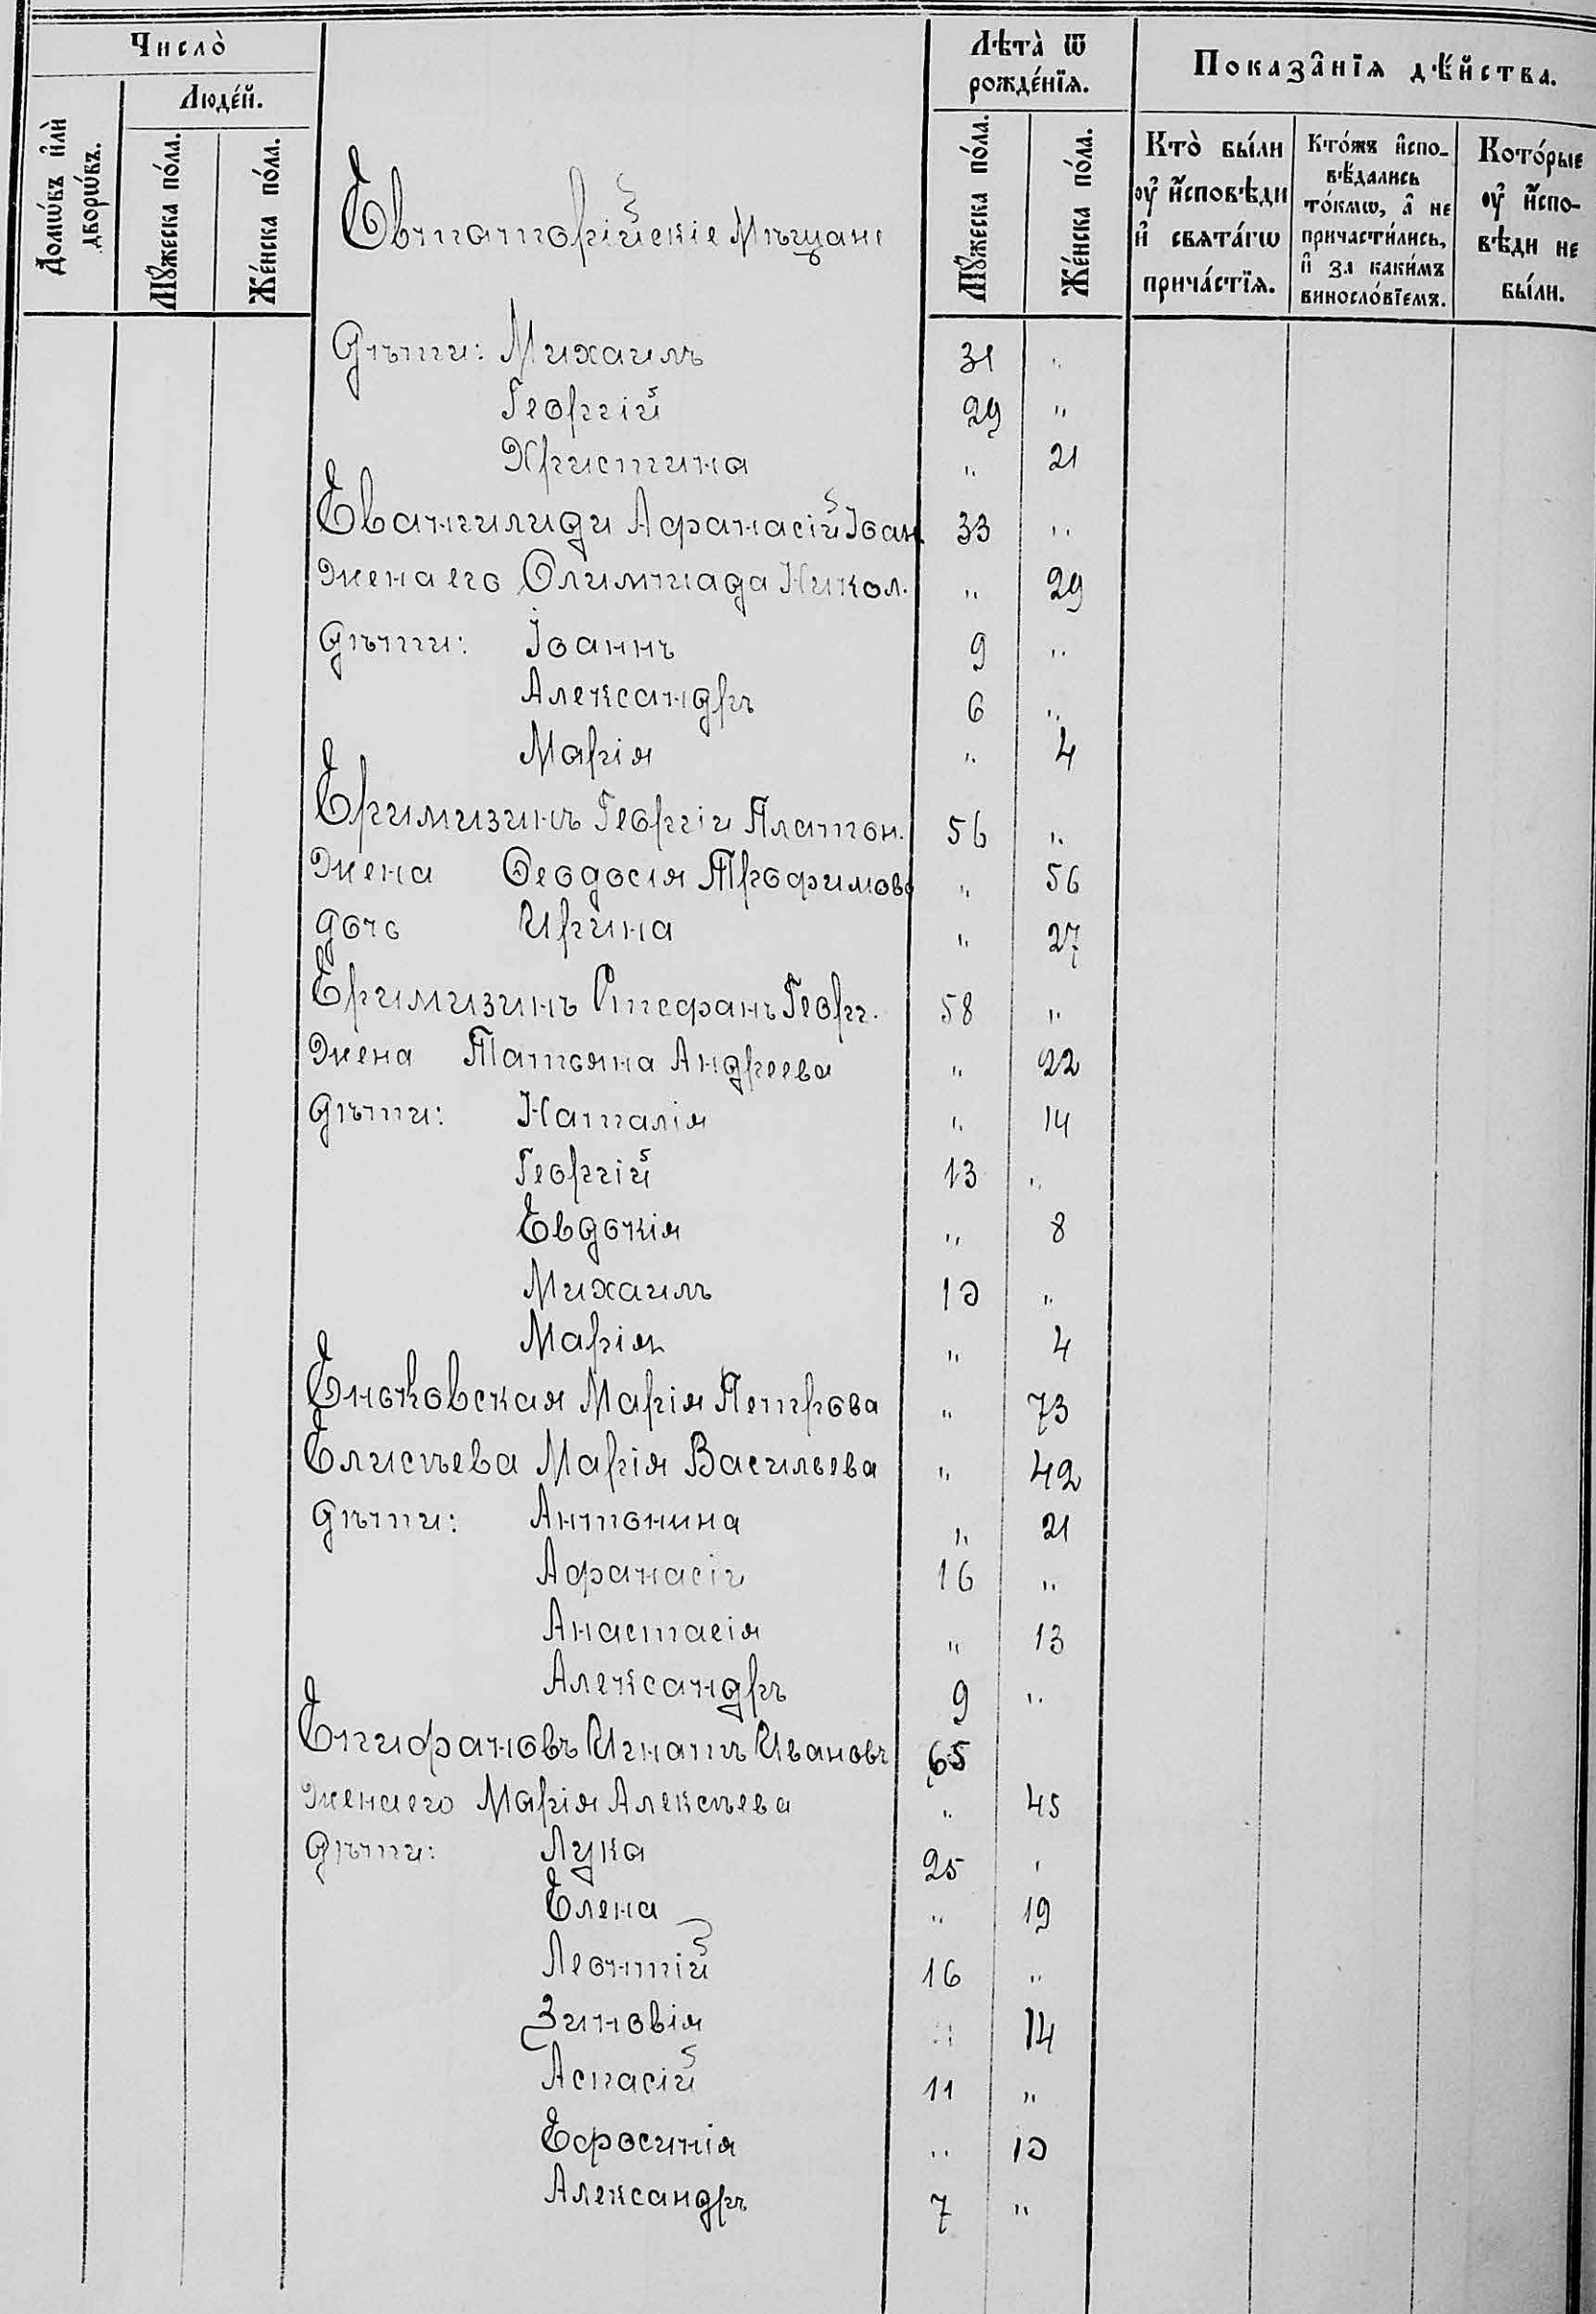 Число̀
Людéй.
Домѡ́въ и҆лѝ дворѡ́въ.
Мꙋ́жеска по́ла.
Же́нска по́ла.
Евпаторійскіе Мѣщане
Лѣта̀ ѿ рожде́нїѧ.
Мꙋ́жеска по́ла.
Же́нска по́ла.
Показа̑нїѧ дѣ́йства.
Кто̀ бы́ли
ᲂу҆ и҆́сповѣди
и҆ свѧта́гѡ
прича́стїѧ.
Кто́жъ и҆спо-
вѣ́дались
то́кмѡ, а҆ не
причасти́лись,
и҆ за каки́мъ
винослѡ́вїемъ.
Кото́рые
ᲂу҆ и҆́спо-
вѣди не
бы́ли.
Дѣти: Михаилъ 31 "
Георгій 29 "
Христина " 21
Евангилиди Афанасій Іоан. 33 "
Жена его Олимпиада Никол. " 29
Дѣти: Іоаннъ 9 "
Александръ 6 "
Марія " 4
Еримизинъ Георгій Платон. 56 "
Жена Феодосія Трофимова " 56
дочь Ирина " 27
Еримизинъ Стефанъ Георг. 58 "
Жена Татьяна Андреева " 22
Дѣти: Наталія " 14
Георгій 13 "
Евдокія " 8
Михаилъ 10 "
Марія " 4
Еноковская Марія Петрова " 73
Елисѣева Марія Васильева " 42
Дѣти: Антонина " 21
Афанасій 16 "
Анастасія " 13
Александръ 9 "
Епифановъ Игнатъ Ивановъ 65
Жена его Марія Алексѣева " 45
Дѣти: Лука 25 "
Елена " 19
Леонтій 16 "
Зиновія " 14
Аспасій 11 "
Ефросинія " 10
Александръ 7 "